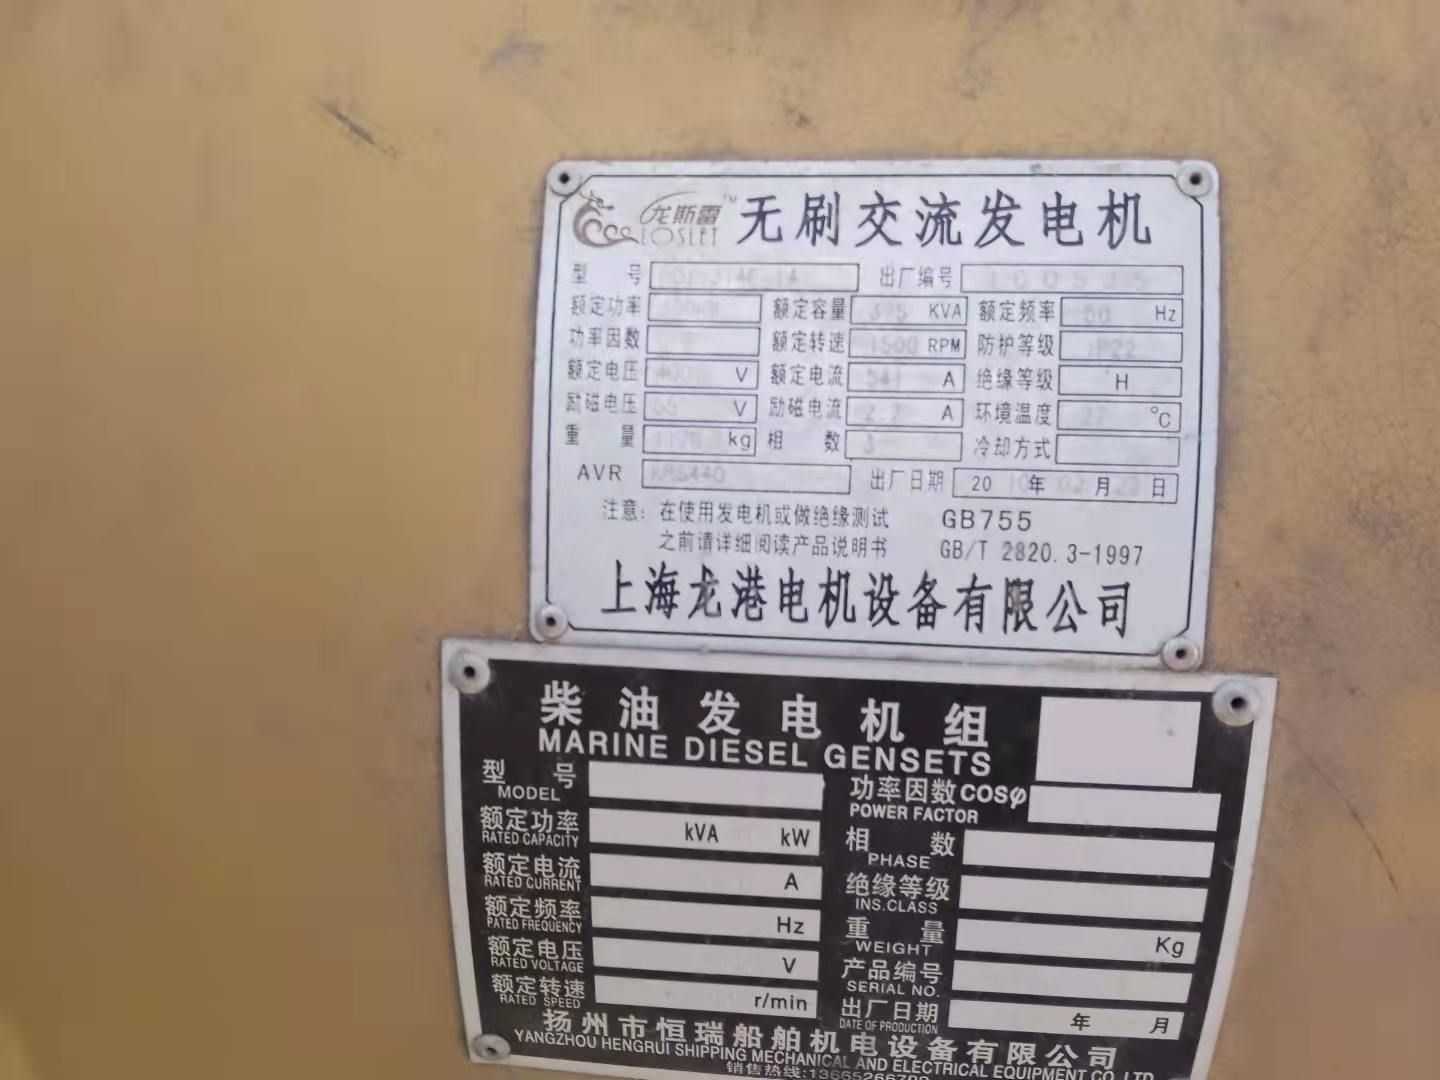 龙斯雷™ LOSLET 无刷交流发电机
型 号 出厂编号
额定功率 额定容量 375 KVA 额定频率 50 Hz
功率因数 额定转速 1500 RPM 防护等级 IP22
额定电压 400 V 额定电流 541 A 绝缘等级 H
励磁电压 V 励磁电流 2.2 A 环境温度 27 ℃
重 量 kg 相 数 3 冷却方式
AVR 出厂日期 20 10 年 月 日
注意: 在使用发电机或做绝缘测试 GB755
之前请详细阅读产品说明书 GB/T 2820.3-1997
上海龙港电机设备有限公司
柴油发电机组
MARINE DIESEL GENSETS
型 号 功率因数COSφ
MODEL POWER FACTOR
额定功率 kVA kW 相 数
RATED CAPACITY PHASE
额定电流 A 绝缘等级
RATED CURRENT INS.CLASS
额定频率 Hz 重 量 Kg
RATED FREQUENCY WEIGHT
额定电压 V 产品编号
RATED VOLTAGE SERIAL NO.
额定转速 r/min 出厂日期 年 月
RATED SPEED DATE OF PRODUCTION
扬州市恒瑞船舶机电设备有限公司
YANGZHOU HENGRUI SHIPPING MECHANICAL AND ELECTRICAL EQUIPMENT CO.,LTD
销售热线: